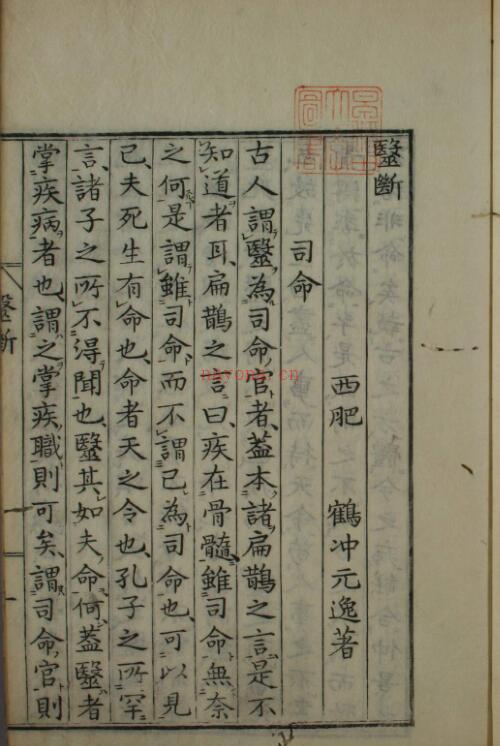 毉斷
西肥 鶴冲元逸著
司命
古人謂毉為司命官者、蓋本諸扁鵲之言、是不
知道者耳、扁鵲之言曰、疾在骨髓、雖司命無奈
之何、是謂雖司命、而不謂己為司命也、可以見
已、夫死生有命也、命者天之令也、孔子之所罕
言、諸子之所不得聞也、毉其如夫命何、蓋毉者
掌疾病者也、謂之掌疾職則可矣、謂司命官則
毉斷